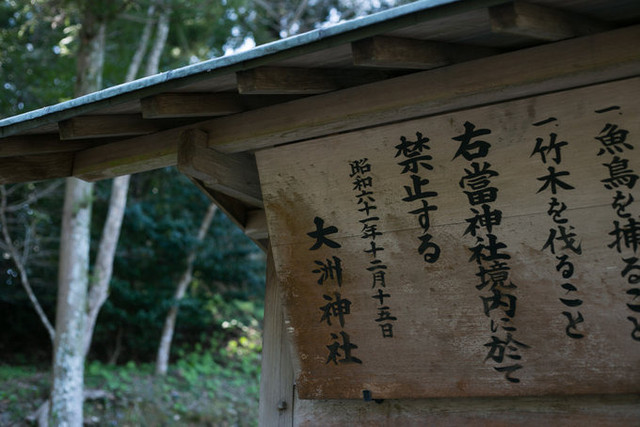 一魚鳥を捕ること
一竹木を伐ること
右當神社境内に於て
禁止する
昭和六十一年十二月十五日
大洲神社